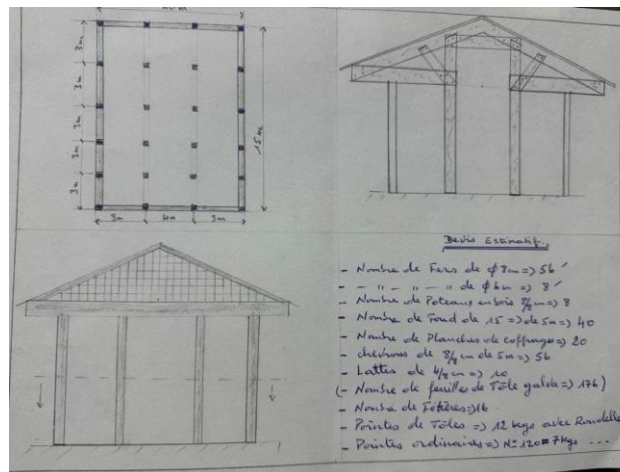 10 m
3m
3m
3m
3m
3m
15 m
3m
4m
3m
Devis Estimatif.
- Nombre de Fers de φ 8m => 56
- - " - " - " de φ 6m => 8
- Nombre de Poteaux en bois 8/8 m => 8
- Nombre de Fond de 15 => de 5m => 40
- Nombre de Planches de coffrage => 20
- chevrons de 8/8 m de 5m => 56
- Lattes de 4/8 m => 10
(- Nombre de feuilles de Tôle galva => 176)
- Nombre de Fétières => 16
- Pointes de Tôles => 12 kgs avec Rondelle
- Pointes ordinaires => N° 120 = 7 kgs ...